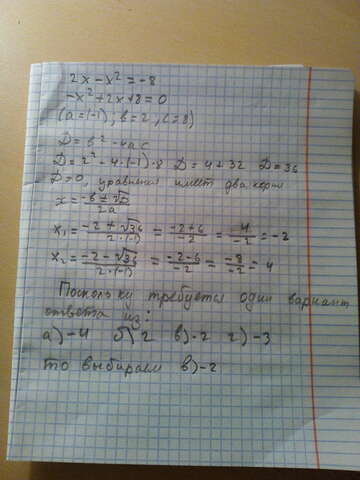 2x - x² = -8
-x² + 2x + 8 = 0
(a = (-1); в = 2, c = 8)
D = в² - 4ac
D = 2² - 4·(-1)·8 D = 4 + 32 D = 36
D > 0, уравнения имеет два корня
x = (-в ± √D)/2a
x₁ = (-2 + √36)/(2·(-1)) = (-2+6)/(-2) = 4/(-2) = -2
x₂ = (-2 - √36)/(2·(-1)) = (-2-6)/(-2) = -8/(-2) = 4
Поскольку требуется один вариант
ответа из:
а) -4 б) 2 в) -2 г) -3
то выбираем в) -2